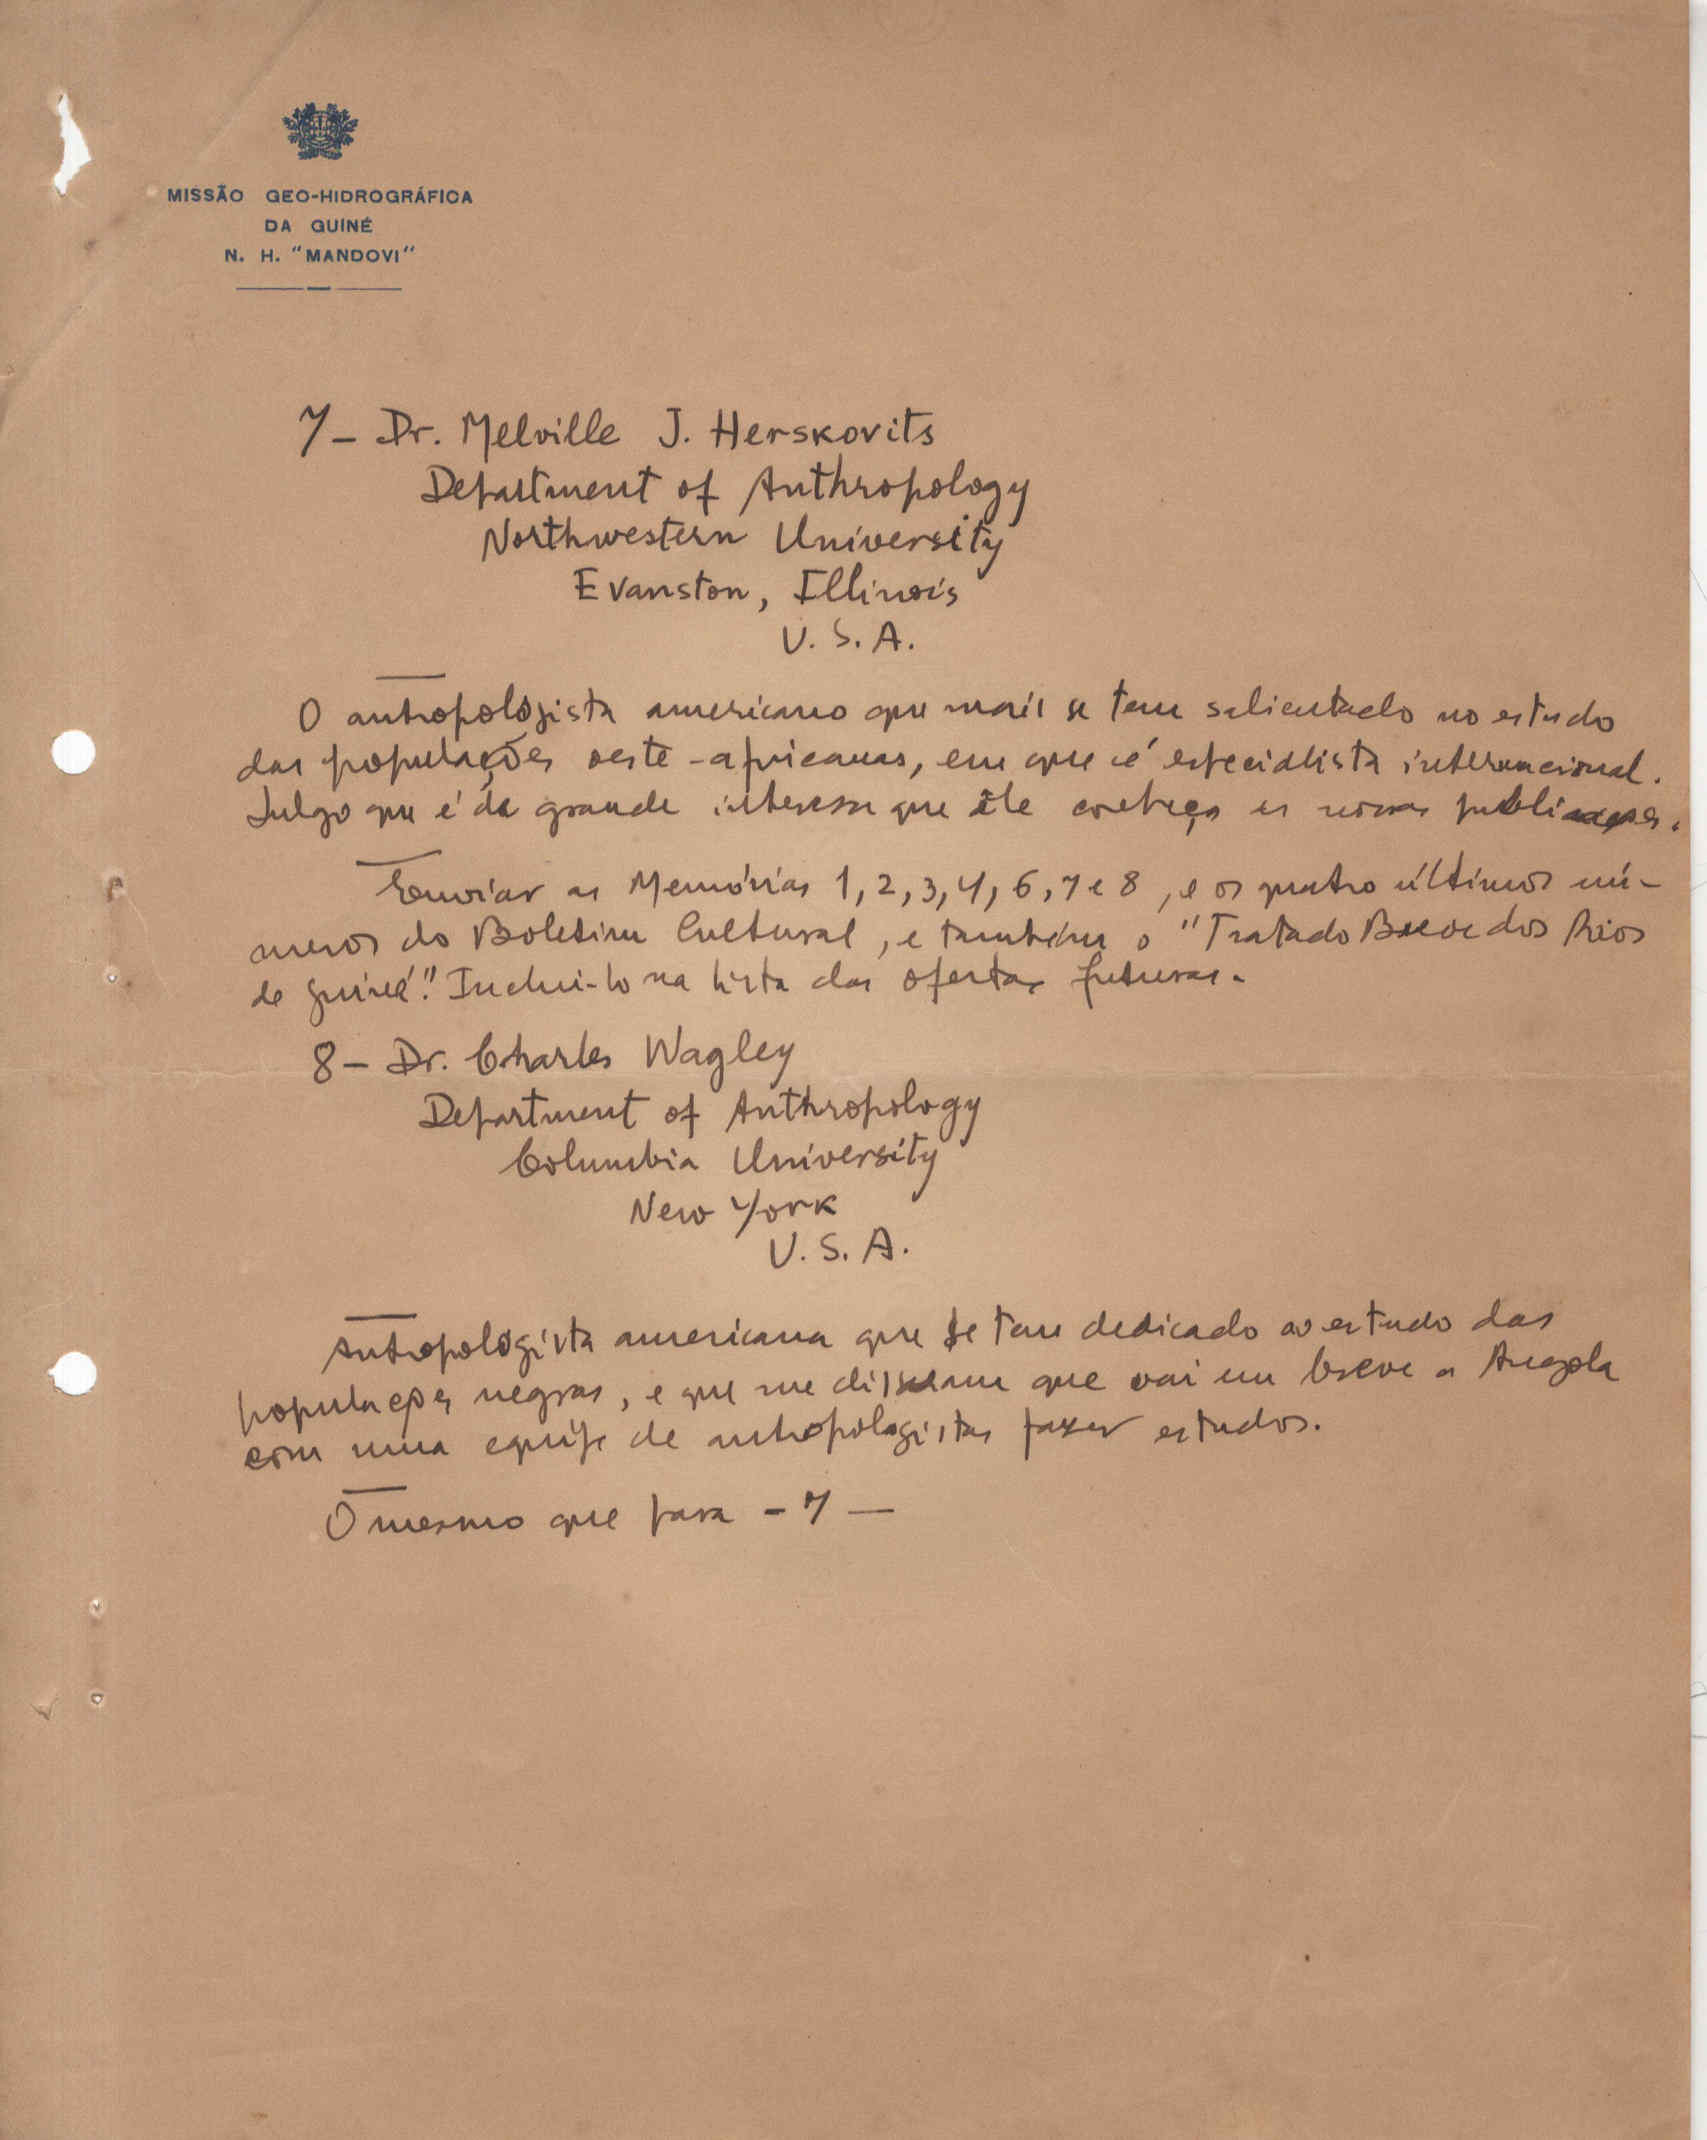 MISSÃO GEO-HIDROGRÁFICA
DA GUINÉ
N. H. "MANDOVI"
7 - Dr. Melville J. Herskovits
Department of Anthropology
Northwestern University
Evanston, Illinois
U. S. A.
O antropologista americano que mais se tem salientado no estudo
das populações oeste-africanas, em que é especialista internacional.
Julgo que é de grande interesse que ele conheça as nossas publicações.
Enviar as Memórias 1, 2, 3, 4, 6, 7 e 8, e os quatro últimos nú-
meros do Boletim Cultural, e também o "Tratado Breve dos Rios
de Guiné". Inclui-lo na lista das ofertas futuras.
8 - Dr. Charles Wagley
Department of Anthropology
Columbia University
New York
U. S. A.
Antropologista americana que se tem dedicado ao estudo das
populações negras, e que me disseram que vai em breve a Angola
com uma equipe de antropologistas fazer estudos.
O mesmo que para - 7 -